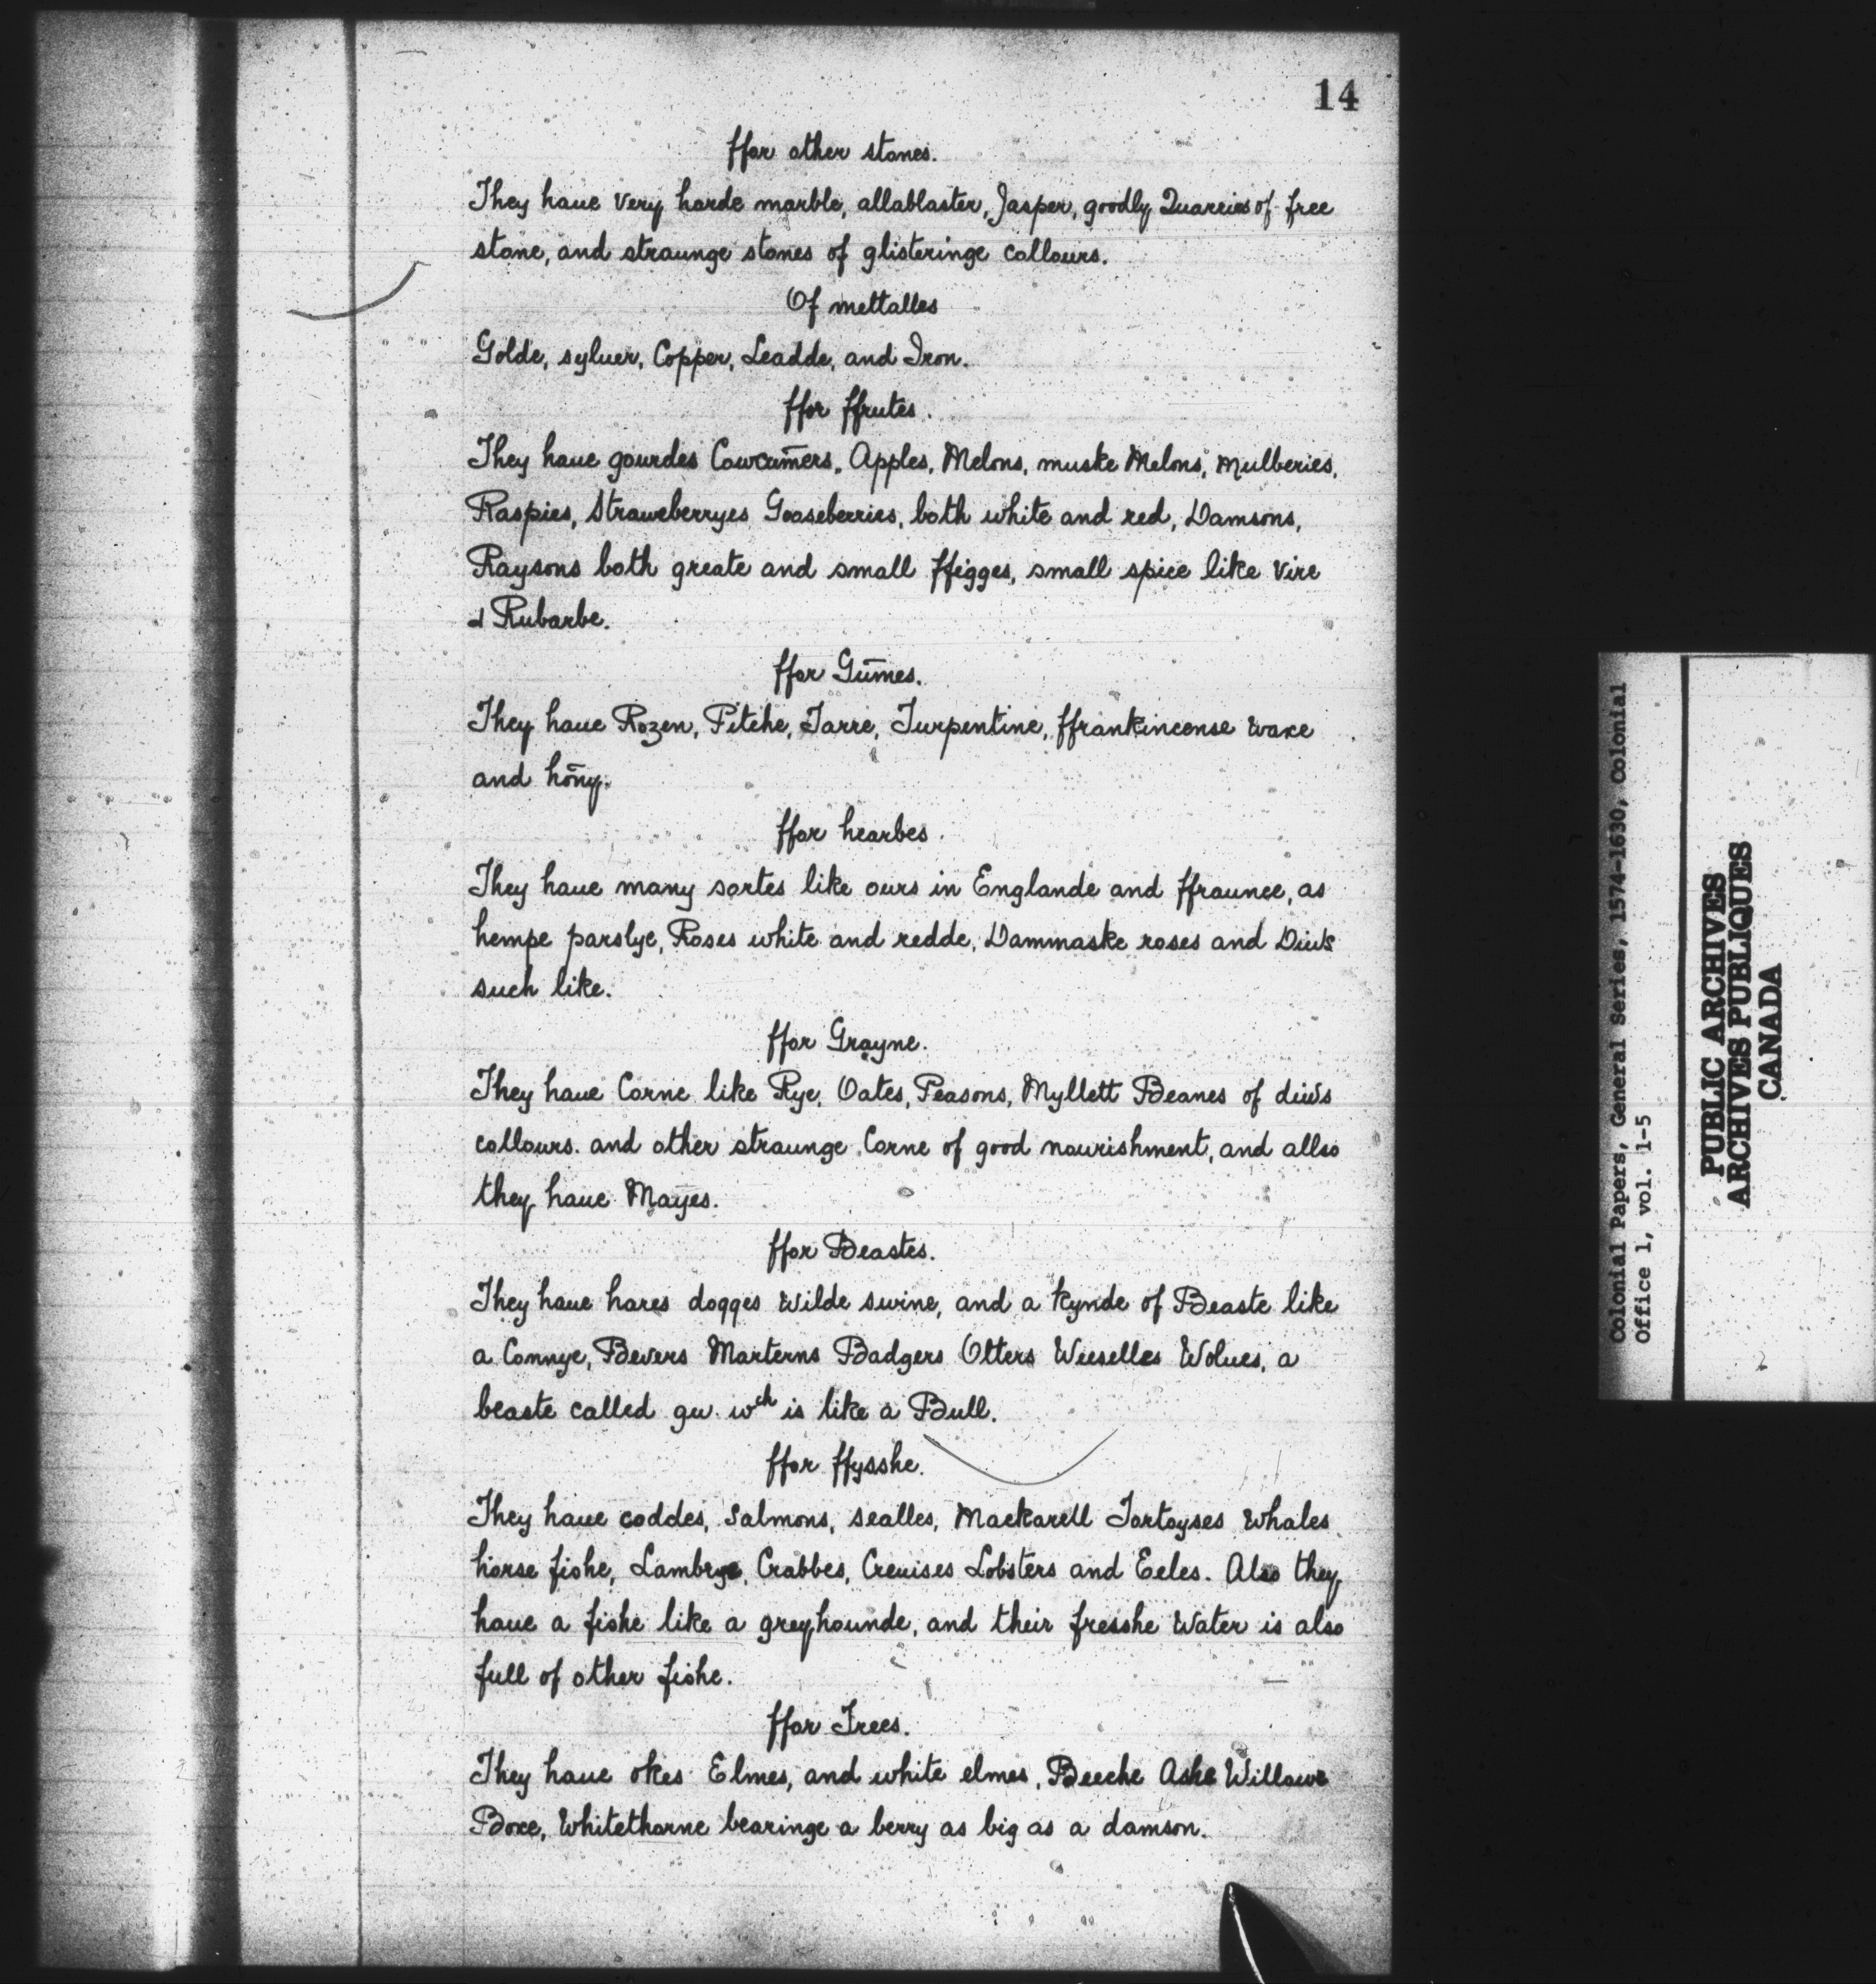 14
ffor other stones.
They haue very harde marble, allablaster, Jasper, goodly Quarries of free
stone, and straunge stones of glisteringe collours.
Of mettalles
Golde, syluer, Copper, Leadde, and Iron.
ffor ffrutes.
They haue gourdes Cowcum̄ers, Apples, Melons, muske Melons, Mulberies,
Raspies, Straweberryes Gooseberries, both white and red, Damsons,
Raysons both greate and small ffigges, small spice like Vire
& Rubarbe.
ffor Gum̄es.
They haue Rozen, Pitche, Tarre, Turpentine, ffrankincense waxe
and hōny.
ffor hearbes.
They haue many sortes like ours in Englande and ffraunce, as
hempe parslye, Roses white and redde, Dammaske roses and Diu's
such like.
ffor Grayne.
They haue Corne like Rye, Oates, Peasons, Myllett Beanes of diu's
collours. and other straunge Corne of good nourishment, and allso
they haue Mayes.
ffor Beastes.
They haue hares dogges Wilde swine, and a kynde of Beaste like
a Connye, Bevers Marterns Badgers Otters Weeselles Wolues, a
beaste called gu. wch is like a Bull.
ffor ffysshe.
They haue coddes, Salmons, sealles, Mackarell Tortoyses Whales
horse fishe, Lambrye, Crabbes, Creuises Lobsters and Eeles. Also they
haue a fishe like a greyhounde, and their fresshe Water is also
full of other fishe.
ffor Trees.
They haue okes Elmes, and white elmes, Beeche Ashe Willowe
Boxe, Whitethorne bearinge a berry as big as a damson.
Colonial Papers, General Series, 1574-1630, Colonial
Office 1, vol. 1-5
PUBLIC ARCHIVES
ARCHIVES PUBLIQUES
CANADA